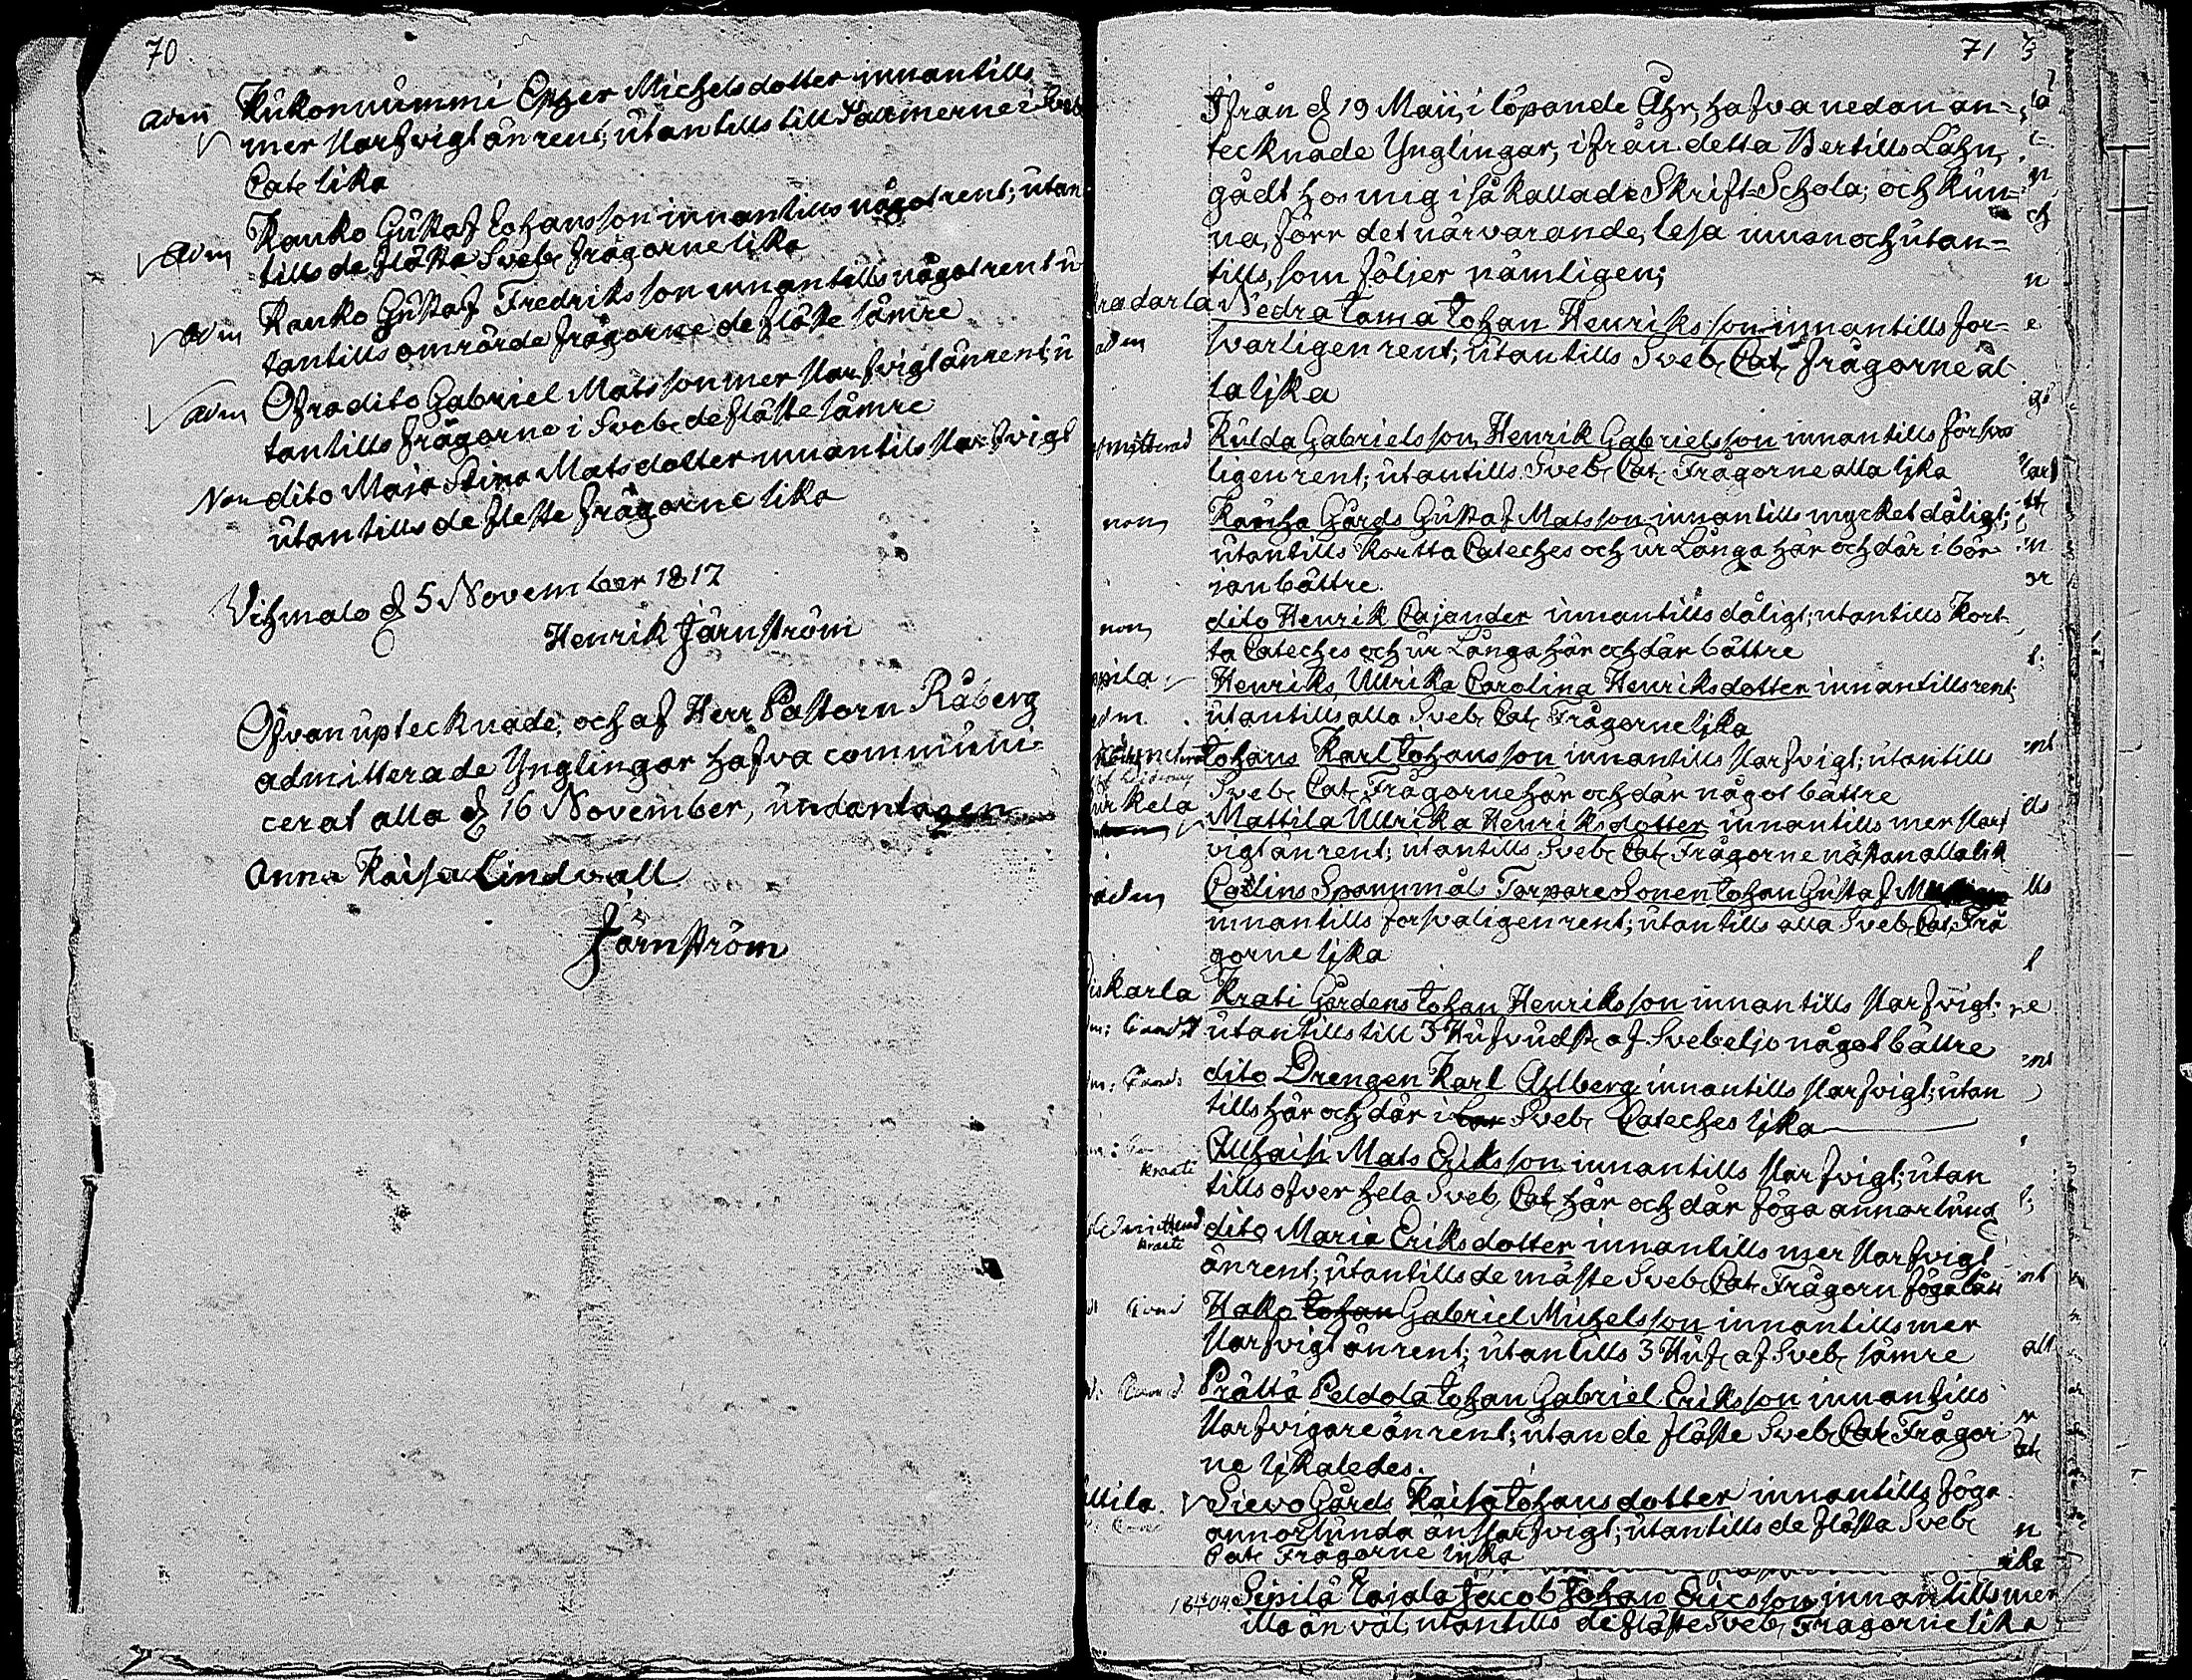 70
adm Kukonnummi Ester Michelsdotter innantills
mer starfvigt än rent; utantills till
Cate lika
adm Kauko Gustaf Johansson innantills något rent; utan
tills de fläste Sveb: frågorne lika
adm Kauko Gustaf Fredriksson innantills något rent u
tantills omrörde frågorne de fläste sämre
adm Ofradito Gabriel Matsson mer starfvigt än rent; u
tantills frågorne i Sveb: de fläste sämre
Non dito Maja Stina Matsdotter innantils starfvigt
utantills de fleste frågorne lika
Vichmalo d 5 November 1817
Henrik Järnström
Ofvan uptecknade, och af Herr Pastorn Råberg
admitterade Ynglingar hafva communi-
cerat alla d 16 November, undantagen
Anna Kaisa Lindvall
Järnström
71
Ifrån d 19 Maii, i löpande Åhr, hafva nedan an-
tecknade Ynglingar, ifrån detta Bertills Lähn,
gådt hos mig i så kallade Skrift-Schola; och kun-
na, förr det närvarande, lesa innan och utan-
tills, som följer nämligen;
Nedratama Johan Henriksson innantills for-
adm svarligen rent; utantills Sveb: Cat: frågorne al
la lika
Kulda Gabrielsson, Henrik Gabrielsson innantills försva
ligen rent; utantills Sveb: Cat: Frågorne alla lika
non Gårds Gustaf Matsson innantills mycket dåligt;
utantills kortta Cateches och ur Långa här och där i bör
jan bättre.
non dito Henrik Cajander innantills dåligt; utantills kort
ta Cateches och ur Långa här och där bättre
Henriks Ullrika Carolina Henriksdotter innantills rent;
adm utantills alla Sveb: Cat: Frågorne lika
Johans Karl Johansson innantills starfvigt; utantills
Sveb: Cat: Frågorne här och där något bättre
Mattila Ullrika Henriksdotter innantills mer starf
vigt än rent; utantills Sveb: Cat: Frågorne nästan alla lik
adm Spannmåls Torpare Sonen Johan Gustaf
innantills forsvaligen rent; utantills alla Sveb: Cat: Frå
gorne lika
Krati Gårdens Johan Henriksson innantills starfvigt;
utantills till 3 Hufvudst: af Svebeljo något bättre
dito Drengen Karl Ahlberg innantills starfvigt; utan
tills här och där i Sveb: Cateches lika
kraati Mats Eriksson innantills starfvigt; utan
tills ofver hela Sveb: Cat: här och där föga annorlund
kraati dito Maria Eriksdotter innantills mer starfvigt
än rent; utantills de mäste Sveb: Cat: Frågorn föga
Hako Johan Gabriel Michelsson innantills mer
starfvigt än rent; utantills 3 Huf: af Sveb: sämre
Prältä Peldola Johan Gabriel Eriksson innantills
starfvigare än rent; utan de fläste Sveb: Cat: Frågor
ne likaledes.
Sievo Gårds Kaisa Johansdotter innantills föga
annorlunda än starfvigt; utantills de fläste Sveb:
Cat: Frågorne lika
Sipilä Jacob Johan Ericsson innantills mer
illa än väl; utantills de fläste Sveb: Fragorne lika